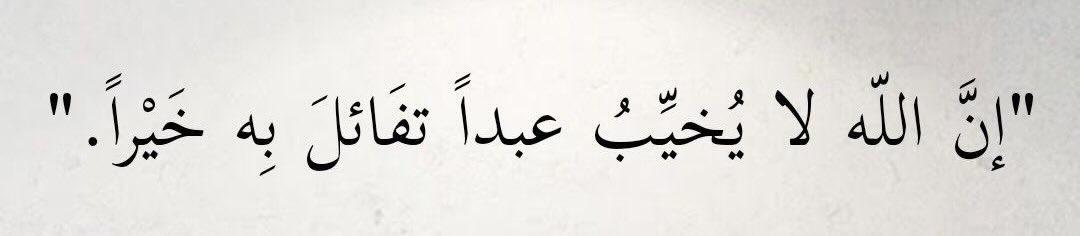 "إنَّ اللّه لا يُخيِّبُ عبداً تفَائلَ بِه خَيْراً."